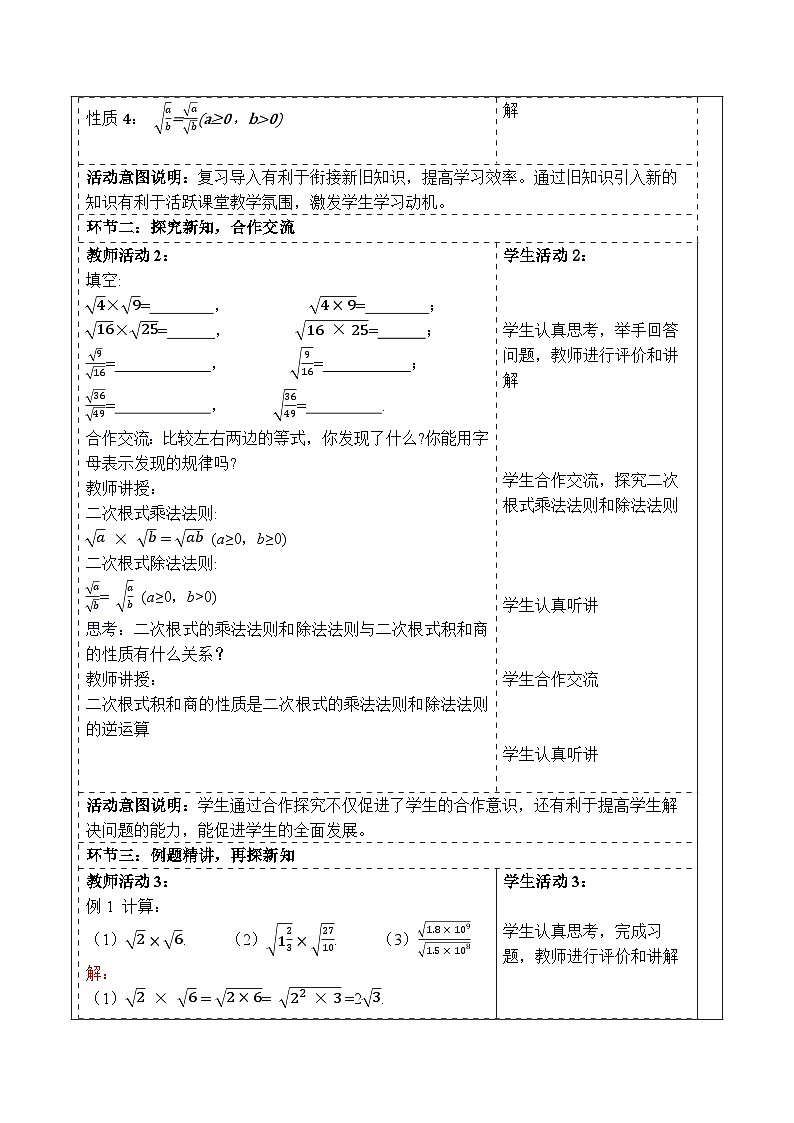 性质 4： √(a/b)=√a/√b(a≥0，b>0)
解
活动意图说明：复习导入有利于衔接新旧知识，提高学习效率。通过旧知识引入新的
知识有利于活跃课堂教学氛围，激发学生学习动机。
环节二：探究新知，合作交流
教师活动 2：
填空:
√4×√9=________， √(4×9)=________；
√16×√25=______， √(16 × 25)=______；
√9/√16=____________， √(9/16)=___________；
√36/√49=____________， √(36/49)=__________.
合作交流: 比较左右两边的等式，你发现了什么?你能用字
母表示发现的规律吗?
教师讲授：
二次根式乘法法则:
√a × √b = √ab (a≥0，b≥0)
二次根式除法法则:
√a/√b= √(a/b) (a≥0，b>0)
思考：二次根式的乘法法则和除法法则与二次根式积和商
的性质有什么关系？
教师讲授：
二次根式积和商的性质是二次根式的乘法法则和除法法则
的逆运算
学生活动 2：
学生认真思考，举手回答
问题，教师进行评价和讲
解
学生合作交流，探究二次
根式乘法法则和除法法则
学生认真听讲
学生合作交流
学生认真听讲
活动意图说明：学生通过合作探究不仅促进了学生的合作意识，还有利于提高学生解
决问题的能力，能促进学生的全面发展。
环节三：例题精讲，再探新知
教师活动 3：
例 1 计算：
（1）√2×√6. （2）√(1 2/3)×√(27/10). （3）√(1.8×10⁹)/√(1.5×10⁸)
解：
（1）√2 × √6 = √(2×6)= √(2² × 3) =2√3.
学生活动 3：
学生认真思考，完成习
题，教师进行评价和讲解